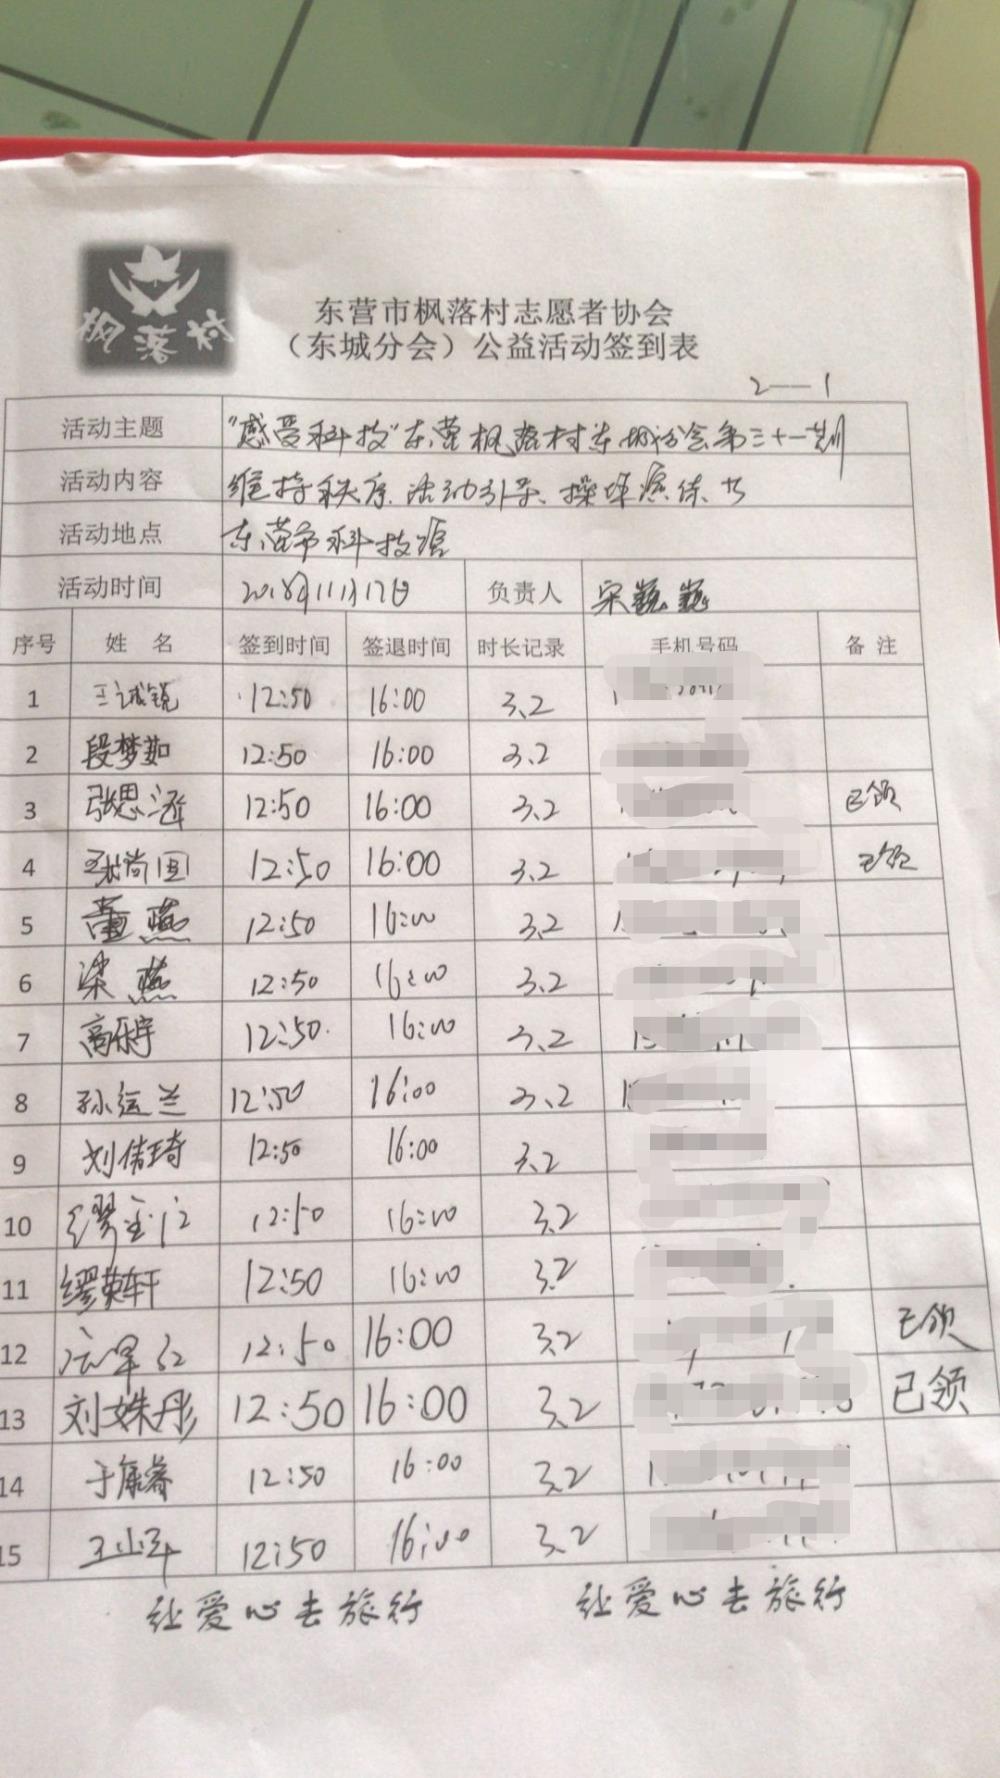 枫落村
东营市枫落村志愿者协会
（东城分会）公益活动签到表
2—1
活动主题 "感受科技"东营枫落村东城分会第三十一期
活动内容 维持秩序、活动引导、操作演练、书
活动地点 东营市科技馆
活动时间 2018年11月17日 负责人 宋巍巍
序号 姓 名 签到时间 签退时间 时长记录 手机号码 备 注
1 王诚锐 12:50 16:00 3.2
2 段梦茹 12:50 16:00 3.2
3 张思涵 12:50 16:00 3.2 已领
4 张尚国 12:50 16:00 3.2 已领
5 董燕 12:50 16:00 3.2
6 梁燕 12:50 16:00 3.2
7 高乐宇 12:50 16:00 3.2
8 孙运兰 12:50 16:00 3.2
9 刘倩琦 12:50 16:00 3.2
10 缪 12:50 16:00 3.2
11 缪英轩 12:50 16:00 3.2
12 12:50 16:00 3.2 已领
13 刘姝彤 12:50 16:00 3.2 已领
14 于康睿 12:50 16:00 3.2
15 王 12:50 16:00 3.2
让爱心去旅行 让爱心去旅行